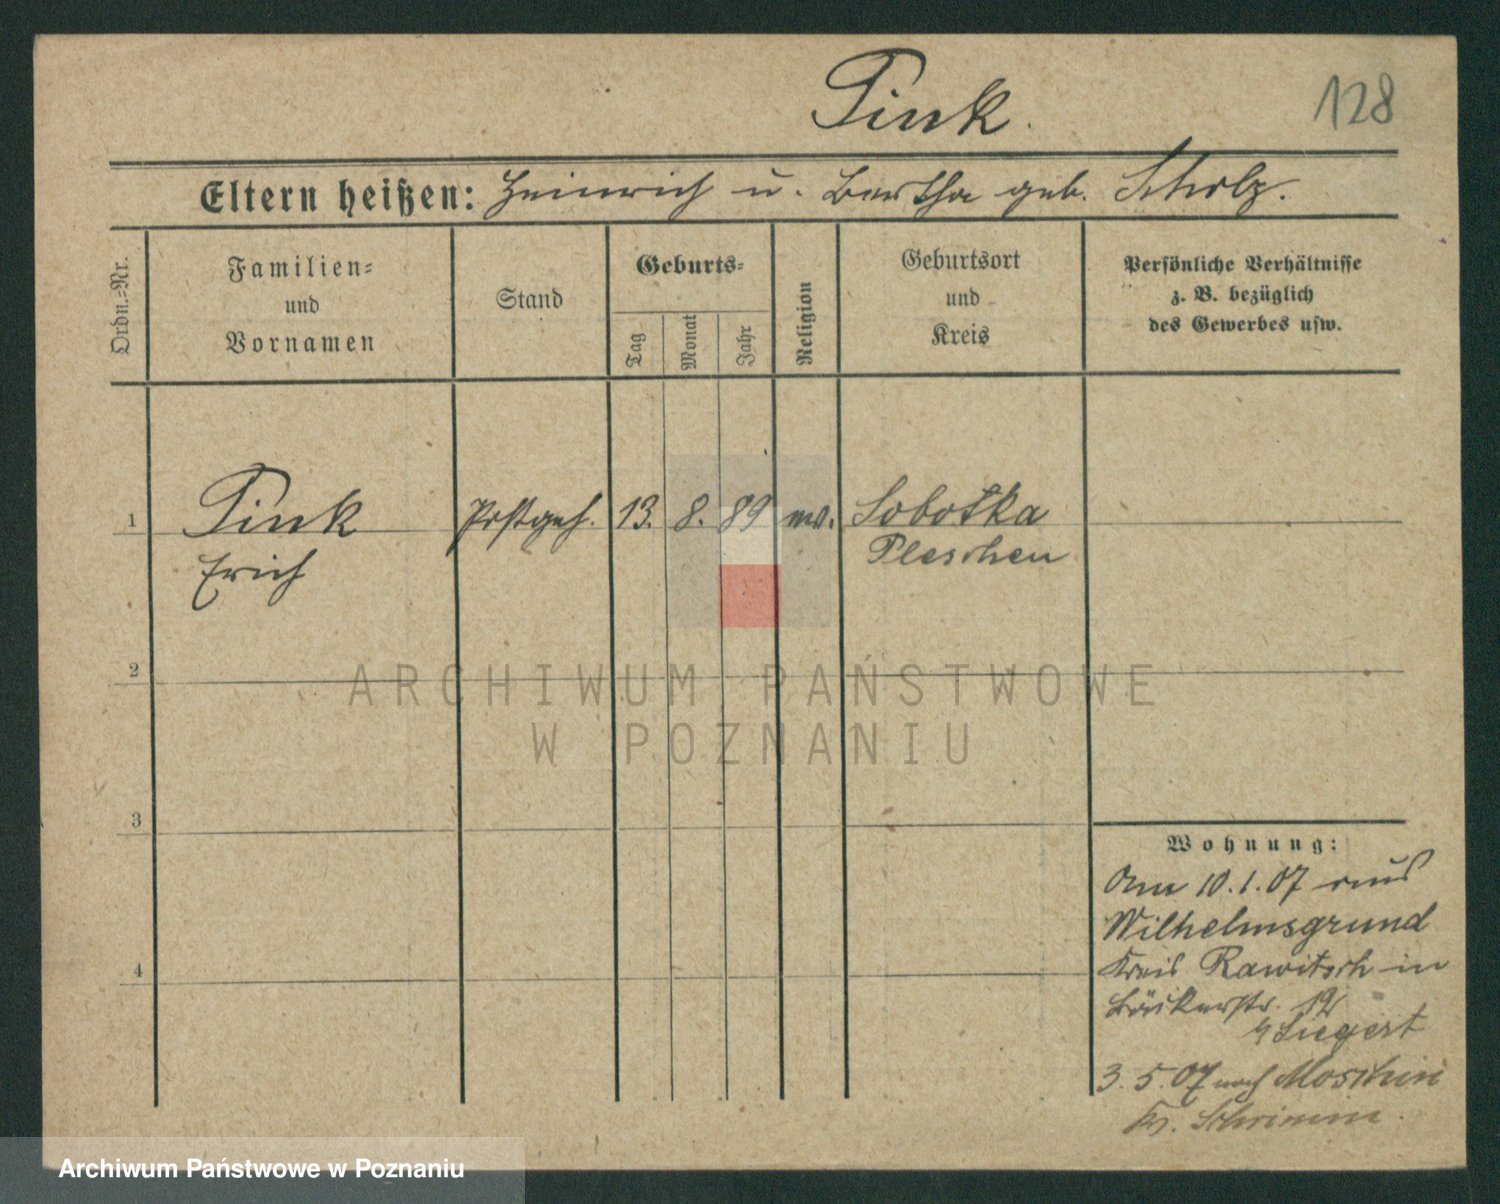 Pink.
128
Eltern heißen: Heinrich u. Bertha geb. Scholz.
Ordn.-Nr.
Familien-
und
Vornamen
Stand
Geburts-
Tag
Monat
Jahr
Religion
Geburtsort
und
Kreis
Persönliche Verhältnisse
z. B. bezüglich
des Gewerbes usw.
1
Pink
Erich
Postgeh.
13.
8.
89
ev.
Sobotka
Pleschen
2
3
4
Wohnung:
Am 10.1.07 aus
Wilhelmsgrund
Kreis Rawitsch in
Bäckerstr. 19
b/ Siegert
3. 5. 07 nach Moschin
Kr. Schrimm.
ARCHIWUM PAŃSTWOWE
W POZNANIU
Archiwum Państwowe w Poznaniu